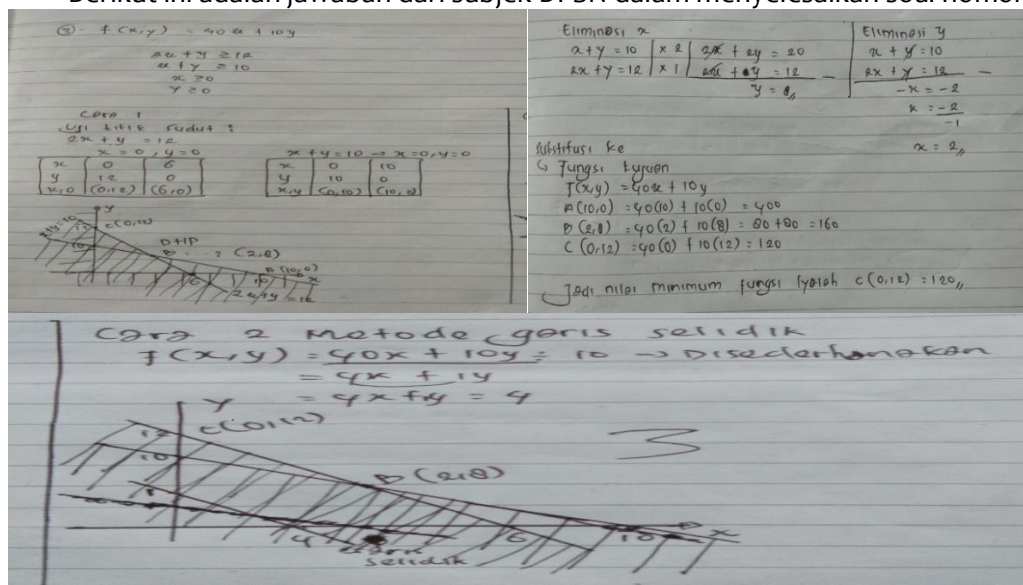 Berikut ini adalah jawaban dari subjek
dalam menyelesaikan soal nomor
② f(x,y) = 40x + 10y
2x + y ≥ 12
x + y ≥ 10
x ≥ 0
y ≥ 0
Cara 1
Uji titik sudut :
2x + y = 12
x = 0, y = 0
x | 0 | 6
y | 12 | 0
x,0 | (0,12) | (6,0)
x + y = 10 → x = 0, y = 0
x | 0 | 10
y | 10 | 0
x,y | (0,10) | (10,0)
y
C(0,12)
12
10
DHP
B ... ? (2,8)
A (10,0)
6
10
x
2x+y = 12
Eliminasi x
x + y = 10 | x 2 | 2x + 2y = 20
2x + y = 12 | x 1 | 2x + y = 12 –
y = 8,,
Eliminasi y
x + y = 10
2x + y = 12 –
-x = -2
x = -2
-1
x = 2,,
Substitusi ke
↳ Fungsi tujuan
f(x,y) = 40x + 10y
A (10,0) = 40(10) + 10(0) = 400
B (2,8) = 40(2) + 10(8) = 80 + 80 = 160
C (0,12) = 40(0) + 10(12) = 120
Jadi nilai minimum fungsi iyalah C(0,12) = 120,,
Cara 2 Metode garis selidik
f(x,y) = 40x + 10y = 10 → Disederhanakan
= 4x + 1y
= 4x + y = 4
y
C(0,12)
12
10
B (2,8)
3
4
6
10
x
garis
selidik